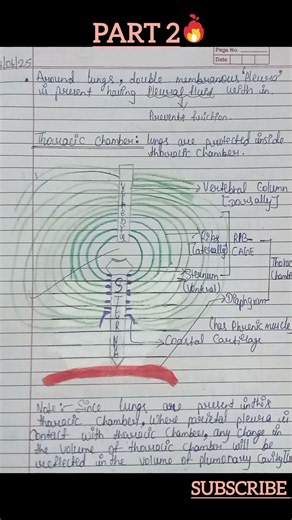 PART 2🔥
Page No.
Date
/06/25
• Around lungs, double membranous "Pleura"
is present having pleural fluid with in.
Prevents friction.
Thoracic Chamber: lungs are protected inside
thoracic chamber.
Vertebral Column
[Dorsally]
Ribs
[laterally]
RIB
CAGE
Thorac
Chamber
Sternum
(Ventral)
STERNUM
Diaphragm
(has Phrenic muscle
Coastal Cartilage
Note:- Since lungs are present in this
thoracic chamber, where parietal pleura is
contact with thoracic chamber, any change in
the volume of thoracic chamber will be
reflected in the volume of plumonary cavity
SUBSCRIBE